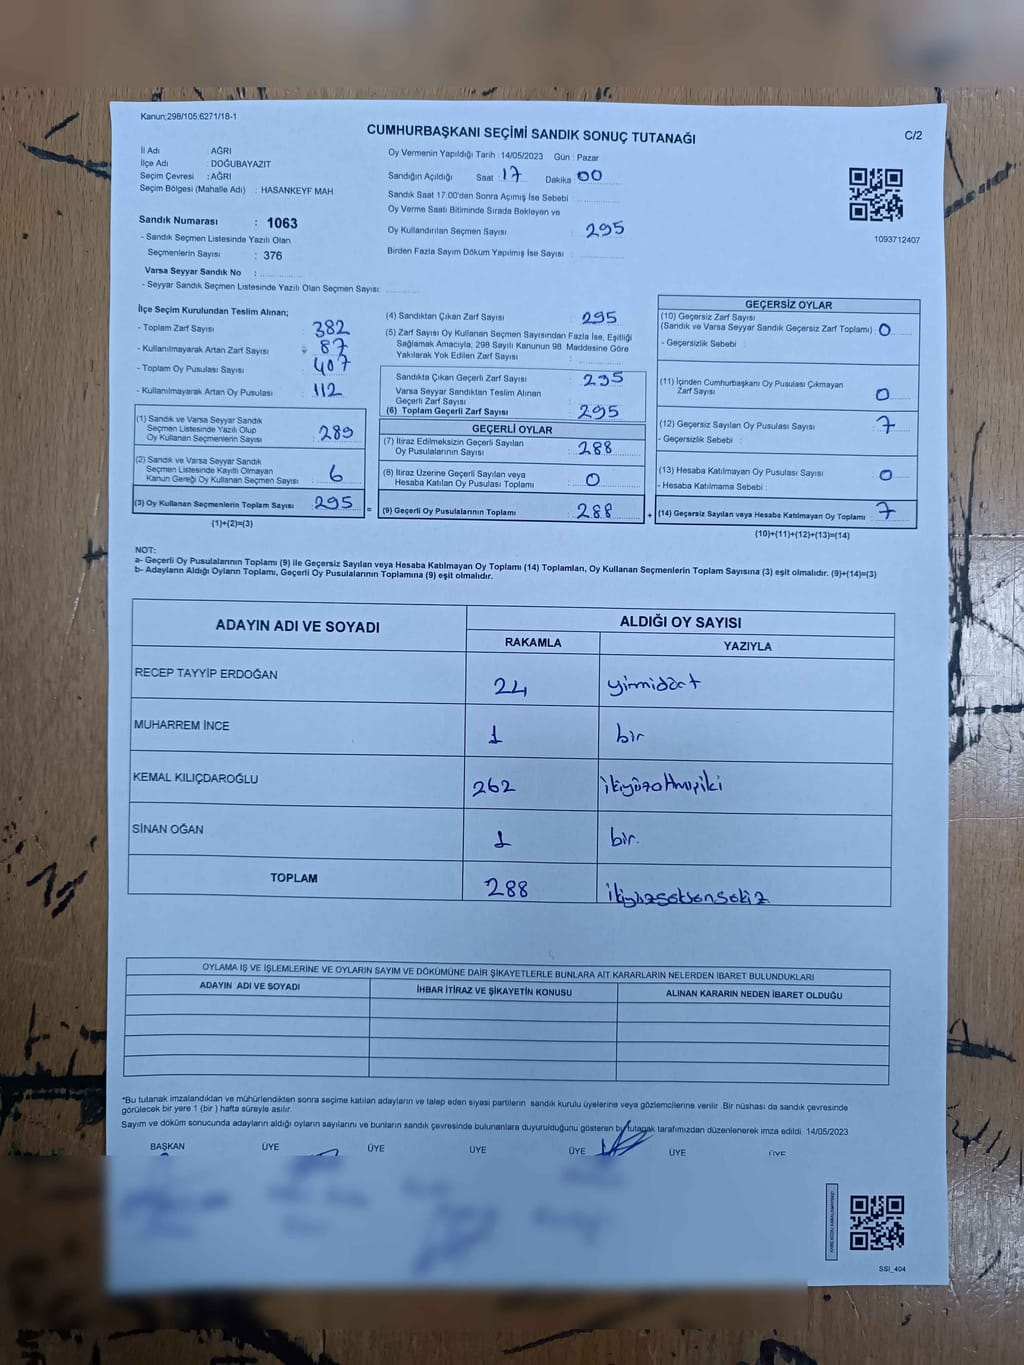 Kanun;298/105.6271/18-1
CUMHURBAŞKANI SEÇİMİ SANDIK SONUÇ TUTANAĞI
C/2
İl Adı : AĞRI
İlçe Adı : DOĞUBAYAZIT
Seçim Çevresi : AĞRI
Seçim Bölgesi (Mahalle Adı) : HASANKEYF MAH
Sandık Numarası : 1063
- Sandık Seçmen Listesinde Yazılı Olan
Seçmenlerin Sayısı : 376
Varsa Seyyar Sandık No :
- Seyyar Sandık Seçmen Listesinde Yazılı Olan Seçmen Sayısı:
Oy Vermenin Yapıldığı Tarih : 14/05/2023 Gün : Pazar
Sandığın Açıldığı Saat 17 Dakika 00
Sandık Saat 17.00'den Sonra Açımış İse Sebebi
Oy Verme Saati Bitiminde Sırada Bekleyen ve
Oy Kullandırılan Seçmen Sayısı 295
Birden Fazla Sayım Döküm Yapılmış İse Sayısı :
1093712407
İlçe Seçim Kurulundan Teslim Alınan;
- Toplam Zarf Sayısı : 382
- Kullanılmayarak Artan Zarf Sayısı 87
- Toplam Oy Pusulası Sayısı : 407
- Kullanılmayarak Artan Oy Pusulası : 112
(1) Sandık ve Varsa Seyyar Sandık
Seçmen Listesinde Yazılı Olup
Oy Kullanan Seçmenlerin Sayısı : 289
(2) Sandık ve Varsa Seyyar Sandık
Seçmen Listesinde Kayıtlı Olmayan
Kanun Gereği Oy Kullanan Seçmen Sayısı : 6
(3) Oy Kullanan Seçmenlerin Toplam Sayısı : 295
(1)+(2)=(3)
=
(4) Sandıktan Çıkan Zarf Sayısı : 295
(5) Zarf Sayısı Oy Kullanan Seçmen Sayısından Fazla İse, Eşitliği
Sağlamak Amacıyla; 298 Sayılı Kanunun 98. Maddesine Göre
Yakılarak Yok Edilen Zarf Sayısı :
Sandıkta Çıkan Geçerli Zarf Sayısı : 295
Varsa Seyyar Sandıktan Teslim Alınan
Geçerli Zarf Sayısı :
(6) Toplam Geçerli Zarf Sayısı : 295
GEÇERLİ OYLAR
(7) İtiraz Edilmeksizin Geçerli Sayılan
Oy Pusulalarının Sayısı : 288
(8) İtiraz Üzerine Geçerli Sayılan veya
Hesaba Katılan Oy Pusulası Toplamı : 0
(9) Geçerli Oy Pusulalarının Toplamı : 288
+
GEÇERSİZ OYLAR
(10) Geçersiz Zarf Sayısı
(Sandık ve Varsa Seyyar Sandık Geçersiz Zarf Toplamı) : 0
- Geçersizlik Sebebi :
(11) İçinden Cumhurbaşkanı Oy Pusulası Çıkmayan
Zarf Sayısı : 0
(12) Geçersiz Sayılan Oy Pusulası Sayısı : 7
- Geçersizlik Sebebi :
(13) Hesaba Katılmayan Oy Pusulası Sayısı : 0
- Hesaba Katılmama Sebebi :
(14) Geçersiz Sayılan veya Hesaba Katılmayan Oy Toplamı : 7
(10)+(11)+(12)+(13)=(14)
NOT:
a- Geçerli Oy Pusulalarının Toplamı (9) ile Geçersiz Sayılan veya Hesaba Katılmayan Oy Toplamı (14) Toplamları, Oy Kullanan Seçmenlerin Toplam Sayısına (3) eşit olmalıdır. (9)+(14)=(3)
b- Adayların Aldığı Oyların Toplamı, Geçerli Oy Pusulalarının Toplamına (9) eşit olmalıdır.
ADAYIN ADI VE SOYADI ALDIĞI OY SAYISI
RAKAMLA YAZIYLA
RECEP TAYYİP ERDOĞAN 24 yirmidört
MUHARREM İNCE 1 bir
KEMAL KILIÇDAROĞLU 262 ikiyüzaltmışiki
SİNAN OĞAN 1 bir.
TOPLAM 288 ikiyüzseksensekiz
OYLAMA İŞ VE İŞLEMLERİNE VE OYLARIN SAYIM VE DÖKÜMÜNE DAİR ŞİKAYETLERLE BUNLARA AİT KARARLARIN NELERDEN İBARET BULUNDUKLARI
ADAYIN ADI VE SOYADI İHBAR İTİRAZ VE ŞİKAYETİN KONUSU ALINAN KARARIN NEDEN İBARET OLDUĞU
*Bu tutanak imzalandıktan ve mühürlendikten sonra seçime katılan adayların ve talep eden siyasi partilerin sandık kurulu üyelerine veya gözlemcilerine verilir. Bir nüshası da sandık çevresinde
görülecek bir yere 1 (bir ) hafta süreyle asılır.
Sayım ve döküm sonucunda adayların aldığı oyların sayılarını ve bunların sandık çevresinde bulunanlara duyurulduğunu gösteren bu tutanak tarafımızdan düzenlenerek imza edildi. 14/05/2023
BAŞKAN ÜYE ÜYE ÜYE ÜYE ÜYE ÜYE
SSI_404